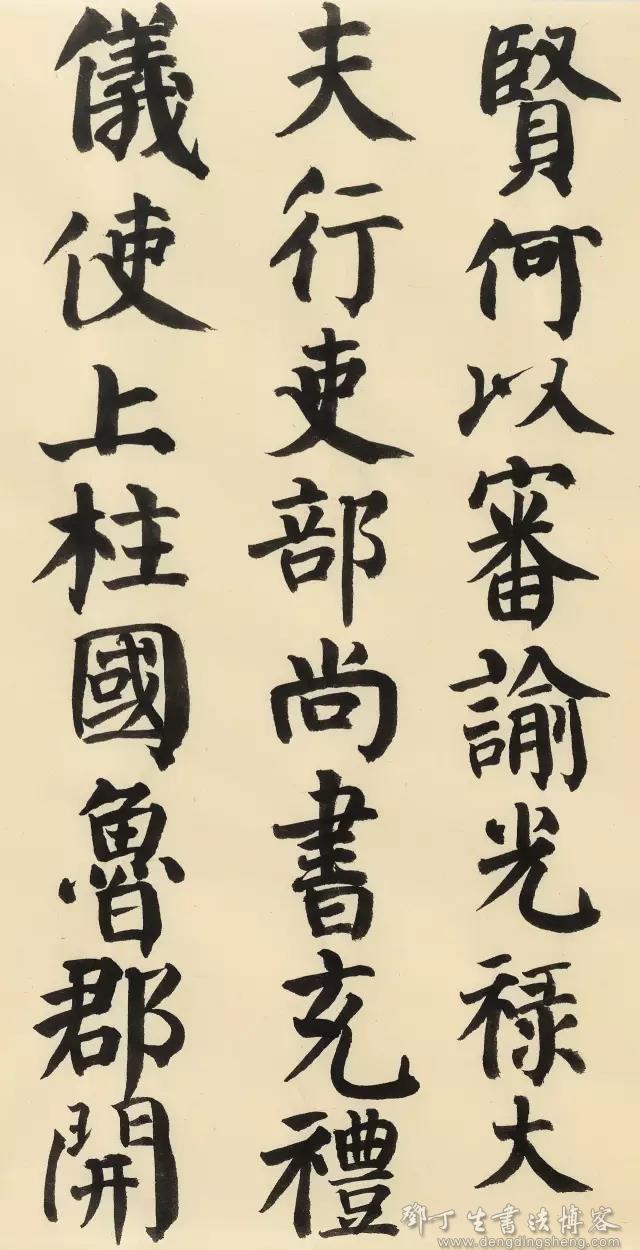 賢何以審諭光祿大
夫行吏部尚書充禮
儀使上柱國魯郡開
鄧丁生書法博客
www.dengdingsheng.com